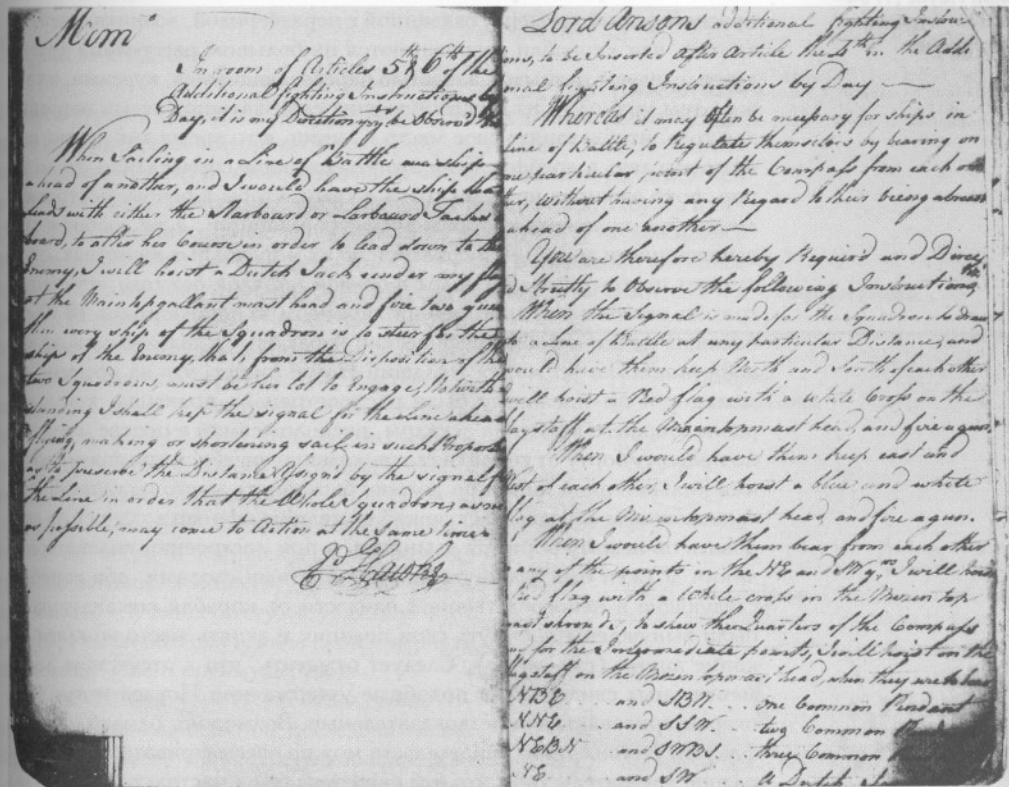 Mem
In room of Articles 5th & 6th of the
Additional fighting Instructions by
Day, it is my Direction
When Sailing in a Line of Battle one ship
ahead of another, and I would have the ship that
leads with either the Starboard or Larboard Tacks
board, to alter her Course in order to lead down to the
Enemy, I will hoist a Dutch Jack under my flag
at the Maintopgallant mast head and fire two guns
then every ship of the Squadron is to steer for the
ship of the Enemy, that from the Disposition of the
two Squadrons, must be her lot to Engage, Notwith
standing I shall keep the signal for the Line ahead
flying, making or shortening sail in such Proportion
as to preserve the Distance Assign'd by the signal f
the Line in order that the Whole Squadron, as
as possible, may come to Action at the Same time
Lord Ansons additional fighting Instruc
ons, to be Inserted After Article the 4th in the Addi
onal fighting Instructions by Day
Whereas it may often be necessary for ships in
Line of Battle to Regulate themselves by bearing on
one particular point of the Compass from each oth
er, without having any Regard to their being abreast
ahead of one another
You are therefore hereby Requir'd and Direc
d Strictly to Observe the following Instructions
When the Signal is made for the Squadron to draw
to a Line of Battle at any particular Distance, and
would have them keep North and South of each other
will hoist a Red flag with a white Cross on the
flagstaff at the Mizentopmast head, and fire a gun
When I would have them keep east and
West of each other, I will hoist a blue and white
flag at the Mizentopmast head, and fire a gun.
When I would have them bear from each other
n any of the points in the NE and SW qrs I will hoist
Red flag with a White cross in the Mizen top
mast shrouds, to shew the Quarters of the Compass
and for the Intermediate points, I will hoist on the
flagstaff on the Mizentopmast head, when they are to bear
NBE ... and SBW ... One Common Pendant
NNE ... and SSW ... two Common
NEBN and SWBS. three Common
NE and SW A Dutch